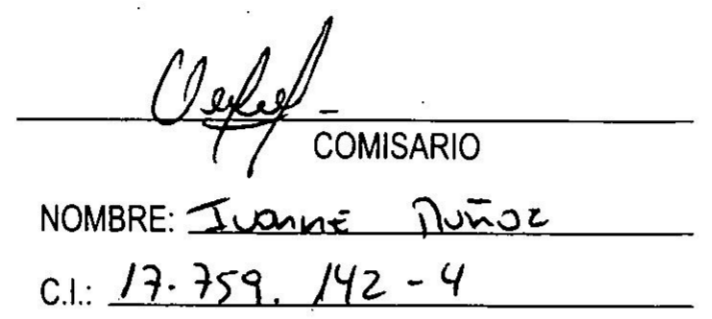 COMISARIO
NOMBRE: Ivonne Muñoz
C.I.: 17.759.142-4